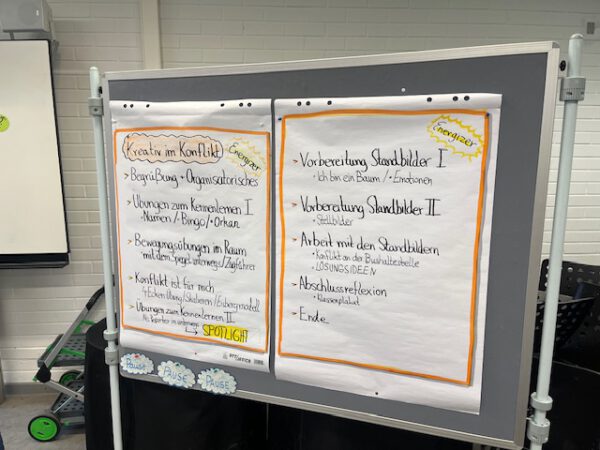 Kreativ im Konflikt
Energizer
➤ Begrüßung + Organisatorisches
➤ Übungen zum Kennenlernen I
• Namen / • Bingo / • Orkan
➤ Bewegungsübungen im Raum
• mit dem Spiegel unterwegs / Zugführer
➤ Konflikt ist für mich
4 Ecken Übung / Skalieren / Eisbergmodell
➤ Übungen zum Kennenlernen II
Als Reporter:in unterwegs
→ SPOTLIGHT
PAUSE
PAUSE
PAUSE
Energizer
➤ Vorbereitung Standbilder I
• Ich bin ein Baum / • Emotionen
➤ Vorbereitung Standbilder II
• Stellbilder
➤ Arbeit mit den Standbildern
• Konflikt an der Bushaltestelle
LÖSUNGSIDEEN
➤ Abschlussreflexion
• Klassenplakat
➤ Ende